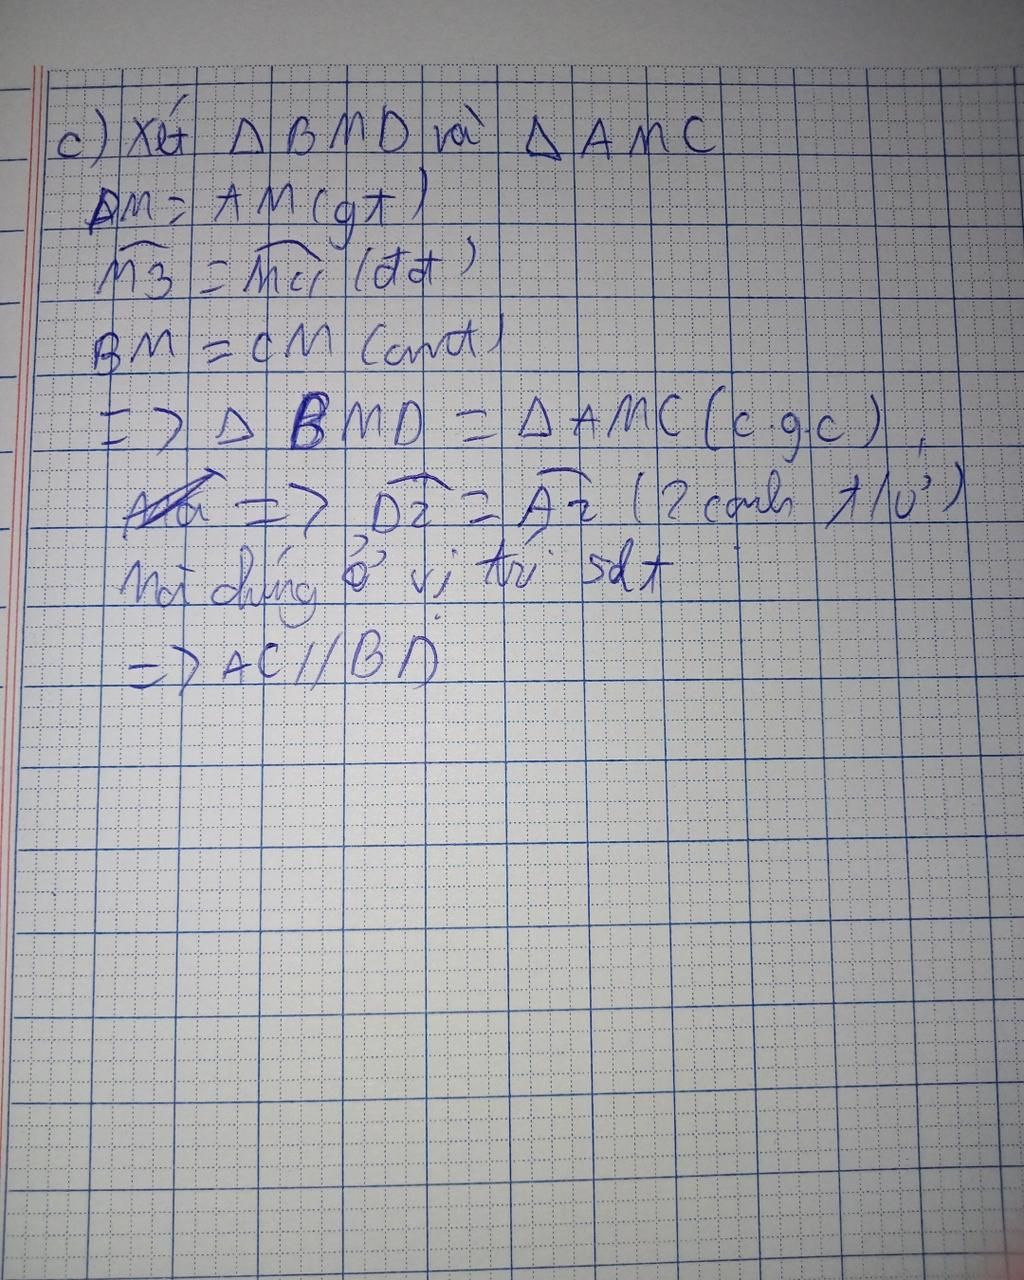 c) Xét Δ BMD và Δ AMC
DM = AM (gt)
M3 = M4 (đđ)
BM = CM (cmt)
=> Δ BMD = Δ AMC (c.g.c)
=> D2 = A2 (2 cạnh t/ứ)
Mà chúng ở vị trí sdt
=> AC // BD